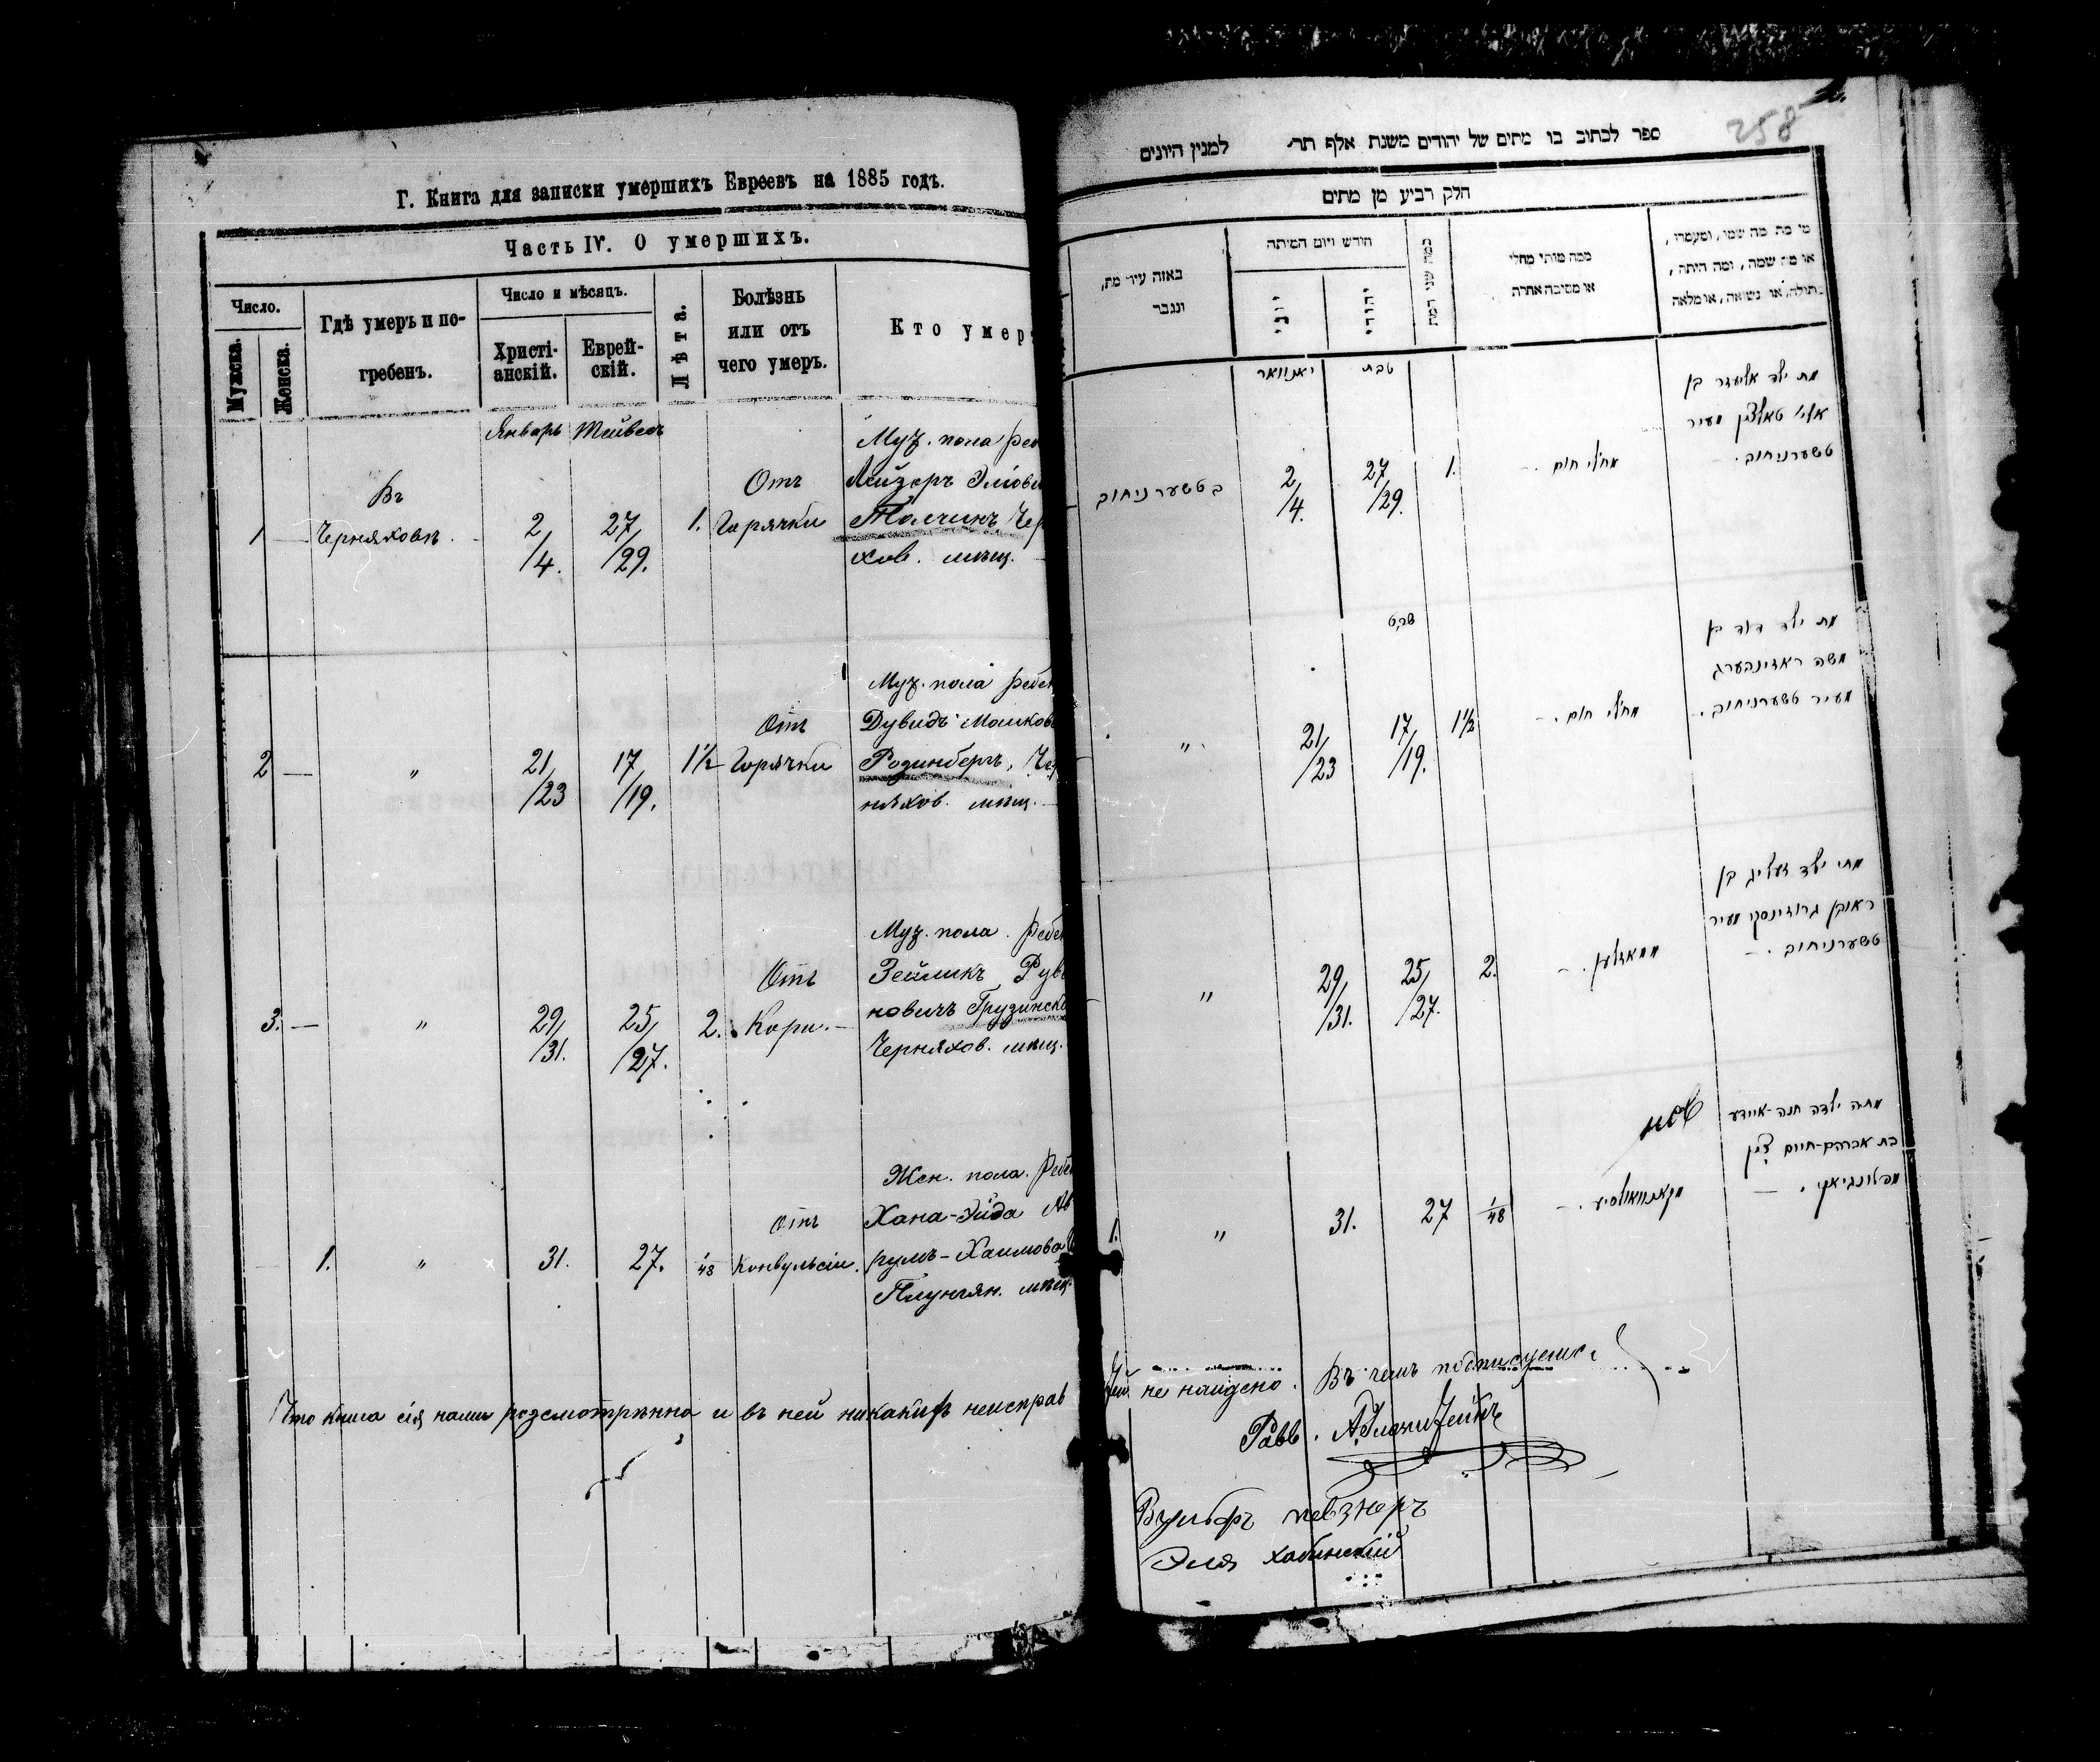 Г. Книга для записки умершихъ Евреевъ на 1885 годъ.
Часть IV. О умершихъ.
Число.
Мужска.
Женска.
Гдѣ умеръ и по-
гребенъ.
Число и мѣсяцъ.
Христі-
анскій.
Еврей-
скій.
Лѣта.
Болѣзнь
или отъ
чего умеръ.
Кто умер
Январь Тейвесъ
1 — Въ
Черняховѣ.
2/4.
27/29.
1.
Отъ
Горячки
Муж. пола реб
Лейзеръ Эліови
Толчинъ Чер
хов. мѣщ.
2 — "
21/23
17/19.
1½
Отъ
Горячки
Муж. пола ребен
Дувидъ Мошков
Розинбергъ, Чер
няхов. мѣщ.
3. — "
29/31.
25/27.
2.
Отъ
Кори.
Муж. пола. Ребен
Зейликъ Рув
новичъ Грузинск
Черняхов. мѣщ.
1. "
31.
27.
1/48
Отъ
Конвульсіи.
Жен. пола. Ребе
Хана-Эйда Ав
румъ-Хаимова
Плунгян. мѣщ.
Что книга сія нами розсмотрѣнна и въ ней никакихъ неисправ
258
ספר לכתוב בו מתים של יהודים משנת אלף תר׳ למנין היונים
חלק רביע מן מתים
מי מת מה שמו, ומעמדו,
או מה שמה, ומה היתה,
בתולה, או נשואה, או מלאה
ממה מותי מחלי
או מסיבה אחרת
כמה שני המת
חודש ויום המיתה
יהודי
יוני
באזה עיר מת,
ונגבר
טבת
יאנוואר
מת ילד אליעזר בן
אלי׳ טאלצין מעיר
טשערניחוב.
מחלי חום
1.
27/29.
2/4.
בטשערניחוב
שבט
מת ילד דוד בן
משה ראזינבערג
מעיר טשערניחוב.
מחלי חום.
1½
17/19.
21/23
"
מת ילד זעליג בן
ראובן גרוזינסקי מעיר
טשערניחוב.
ממאזלען.
2.
25/27.
29/31.
"
מתה ילדה חנה-איידע
בת אברהם-חיים
מפלונגיאן.
1/48
27
31.
"
1.
не найдено. Въ чемъ подписуемся
Равв.
Вульфъ Певзнеръ
Эля Хабинскій